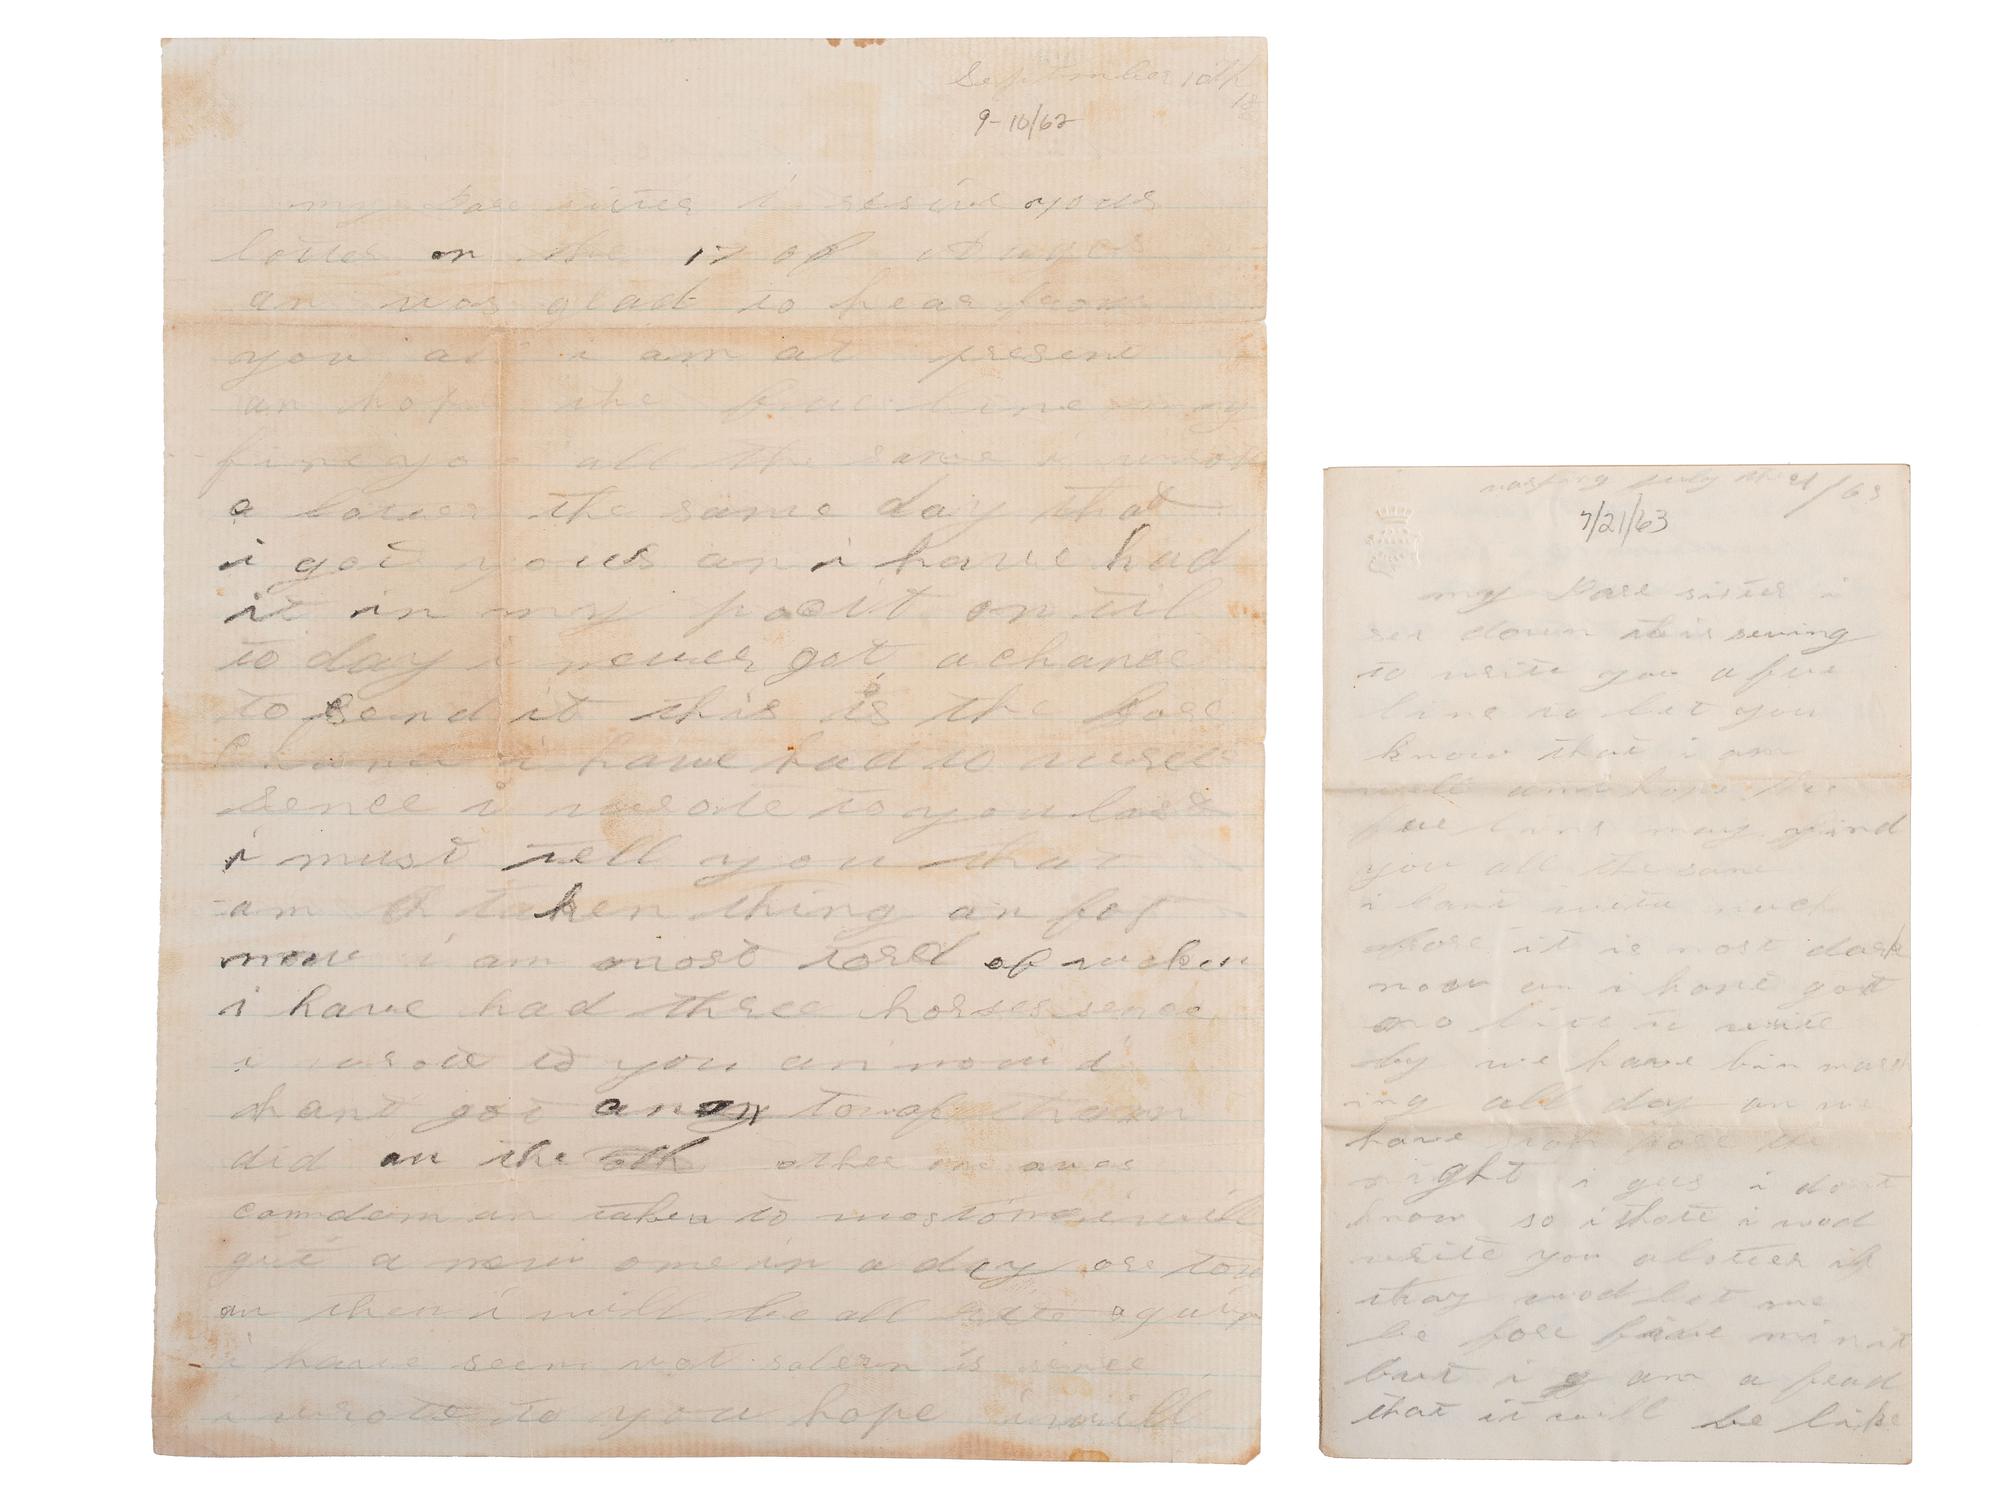 September 10th
18
9-10/62
my Dare sister i resive yours
letter on the 17 of
an was glad to hear from
you as i am at present
an hope the fue line may
fine you all the same i wrote
a letter the same day that
i got yours an i have had
it in my pocit on til
to day i never got a chance
to send it this is the fore
i have had to
sence i wrote to you last
i must tell you that
am taken thing an for
now i am most tord of
i have had three horses sence
i wrote to you an now i
hant got an
did on the other one was
comdem an taken to i will
git a new one in a day ore tow
an then i will be all rite again
i have seen what is since
i wrote to you hope i will
July the 21/63
7/21/63
my Dare sister i
set down this eving
to write you a fue
line to let you
know that i am
well and hope the
fue lins may find
you all the same
i cant write much
fore it is most dark
now an i hant got
no lite to write
by we have bin march
ing all day an we
have fore the
night i gus i dont
know so i thote i wod
write you a letter if
thay wod let me
be fore five minit
but i am a fead
that it will be like